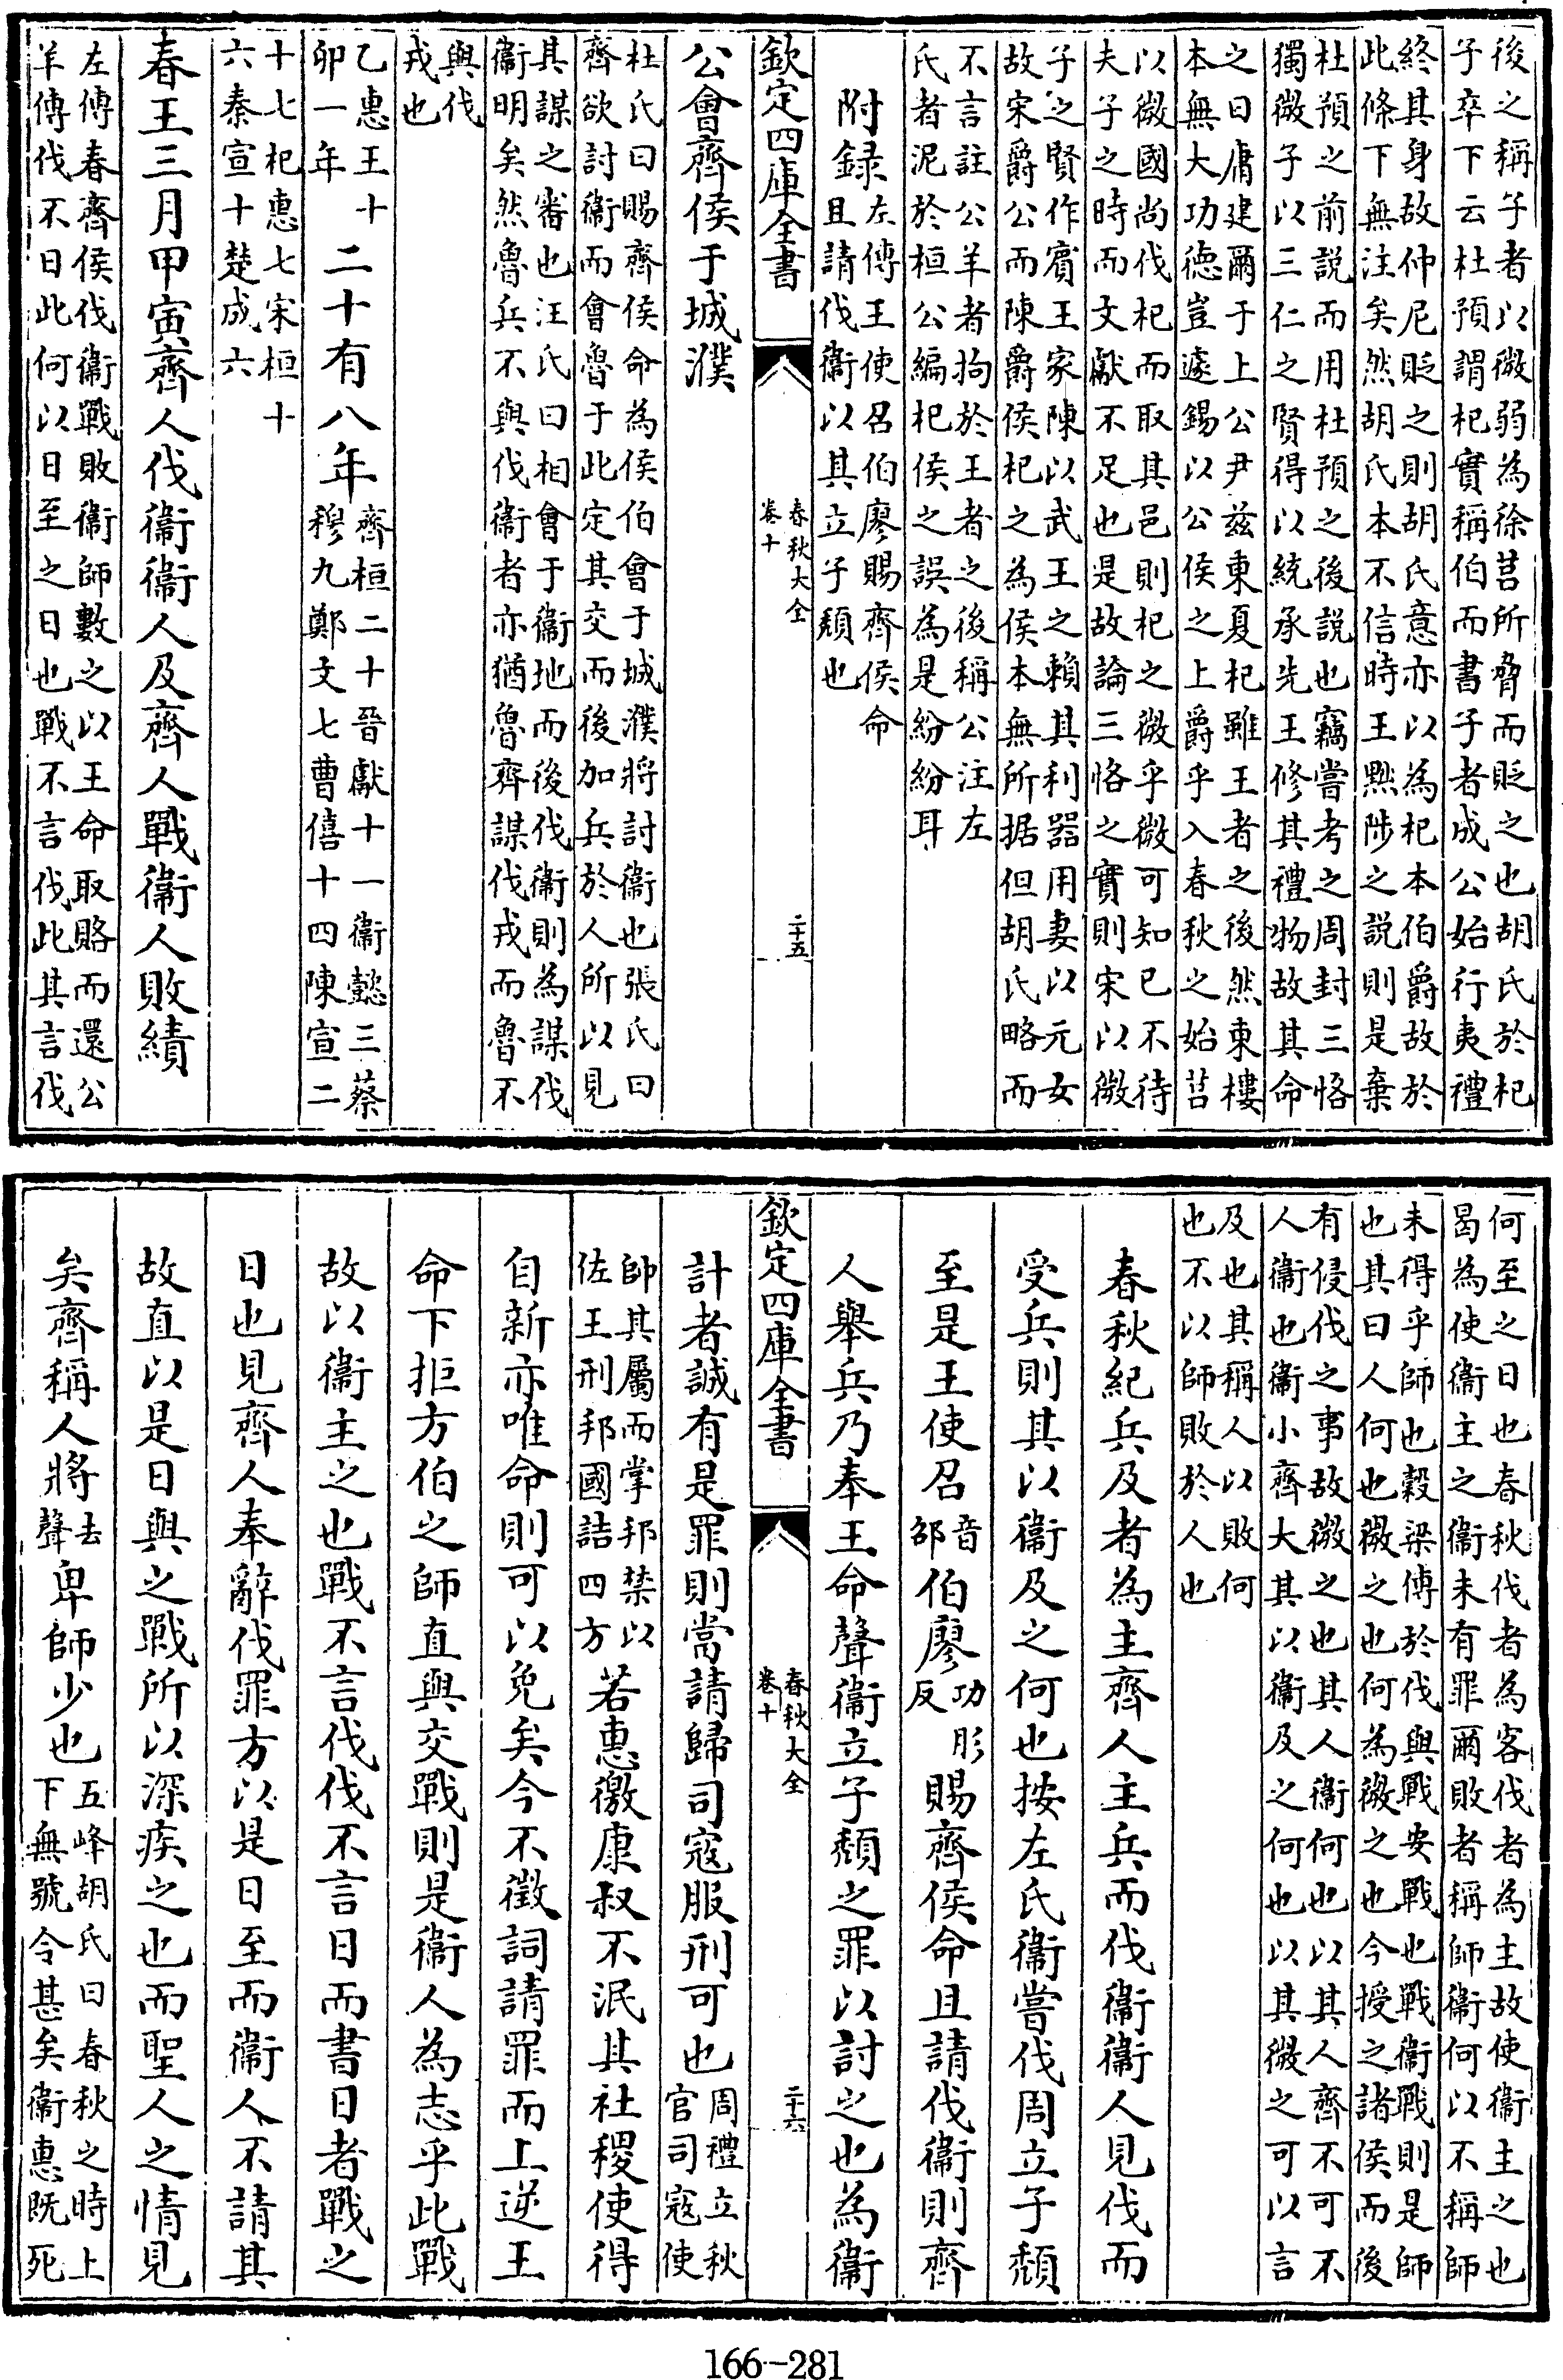 後之稱子者以微弱為徐莒所脅而貶之也胡氏於杞
子卒下云杜預謂杞實稱伯而書子者成公始行夷禮
終其身故仲尼貶之則胡氏意亦以為杞本伯爵故於
此條下無注矣然胡氏本不信時王黜陟之說則是棄
杜預之前說而用杜預之後說也竊嘗考之周封三恪
獨微子以三仁之賢得以統承先王修其禮物故其命
之曰庸建爾于上公尹茲東夏杞雖王者之後然東樓
本無大功德豈遽錫以公侯之上爵乎入春秋之始莒
以微國尚伐杞而取其邑則杞之微乎微可知已不待
夫子之時而文獻不足也是故論三恪之實則宋以微
子之賢作賓王家陳以武王之賴其利器用妻以元女
故宋爵公而陳爵侯杞之為侯本無所据但胡氏略而
不言註公羊者拘於王者之後稱公注左
氏者泥於桓公編杞侯之誤為是紛紛耳
附録左傳王使召伯廖賜齊侯命
且請伐衞以其立子頽也
欽定四庫全書
春秋大全
卷十
二十五
公會齊侯于城濮
杜氏曰賜齊侯命為侯伯會于城濮將討衞也張氏曰
齊欲討衞而會魯于此定其交而後加兵於人所以見
其謀之審也汪氏曰相會于衞地而後伐衞則為謀伐
衞明矣然魯兵不與伐衞者亦猶魯齊謀伐戎而魯不
與伐
戎也
乙惠王十
卯一年
二十有八年
齊桓二十晉獻十一衞懿三蔡
穆九鄭文七曹僖十四陳宣二
十七杞惠七宋桓十
六秦宣十楚成六
春王三月甲寅齊人伐衞衞人及齊人戰衞人敗績
左傳春齊侯伐衞戰敗衞師數之以王命取賂而還公
羊傳伐不日此何以日至之日也戰不言伐此其言伐
何至之日也春秋伐者為客伐者為主故使衞主之也
曷為使衞主之衞未有罪爾敗者稱師衞何以不稱師
未得乎師也穀梁傳於伐與戰安戰也戰衞戰則是師
也其曰人何也微之也何為微之也今授之諸侯而後
有侵伐之事故微之也其人衞何也以其人齊不可不
人衞也衞小齊大其以衞及之何也以其微之可以言
及也其稱人以敗何
也不以師敗於人也
春秋紀兵及者為主齊人主兵而伐衞衞人見伐而
受兵則其以衞及之何也按左氏衞嘗伐周立子頽
至是王使召音邵伯廖功彫反賜齊侯命且請伐衞則齊
人舉兵乃奉王命聲衞立子頽之罪以討之也為衞
欽定四庫全書
春秋大全
卷十
二十六
計者誠有是罪則當請歸司寇服刑可也周禮立秋官司寇使
帥其屬而掌邦禁以佐王刑邦國詰四方若惠徼康叔不泯其社稷使得
自新亦唯命則可以免矣今不徵詞請罪而上逆王
命下拒方伯之師直與交戰則是衞人為志乎此戰
故以衞主之也戰不言伐伐不言日而書日者戰之
日也見齊人奉辭伐罪方以是日至而衞人不請其
故直以是日與之戰所以深疾之也而聖人之情見
矣齊稱人將去聲卑師少也五峰胡氏曰春秋之時上下無號令甚矣衞惠既死
166-281